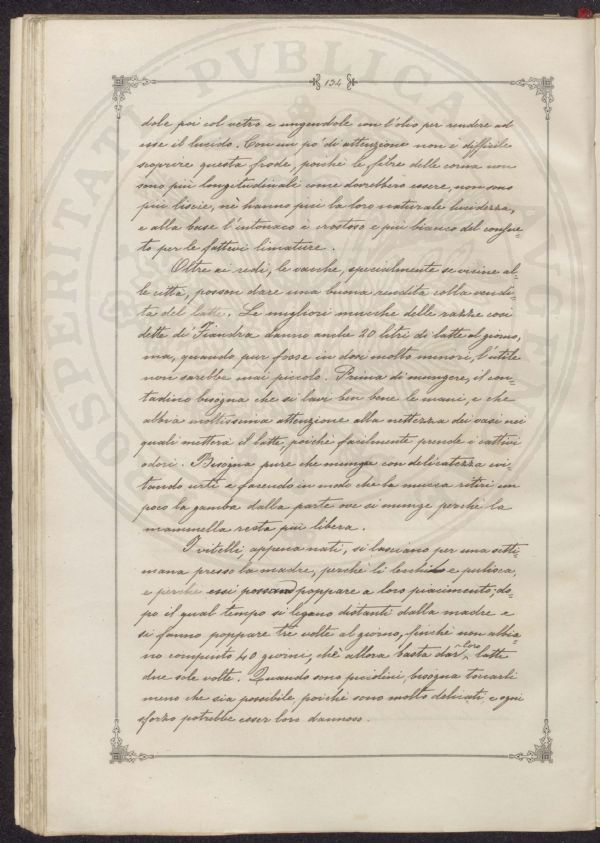 134
dole poi col vetro e ungendole con l'olio per rendere ad
esse il lucido. Con un po' di attenzione non è difficile
scoprire questa frode, poichè le fibre delle corna non
sono più longitudinali come dovrebbero essere, non sono
più liscie, nè hanno più la loro naturale lucidezza,
e alla base l'intonaco è crostoso e più bianco del consue-
to per le fattevi limature.
Oltre ai redi, le vacche, specialmente se vicine al-
le città, posson dare una buona rendita colla vendi-
ta del latte. Le migliori mucche delle razze così
dette di Fiandra danno anche 20 litri di latte al giorno,
ma, quando pur fosse in dosi molto minori, l'utile
non sarebbe mai piccolo. Prima di mungere, il con-
tadino bisogna che si lavi ben bene le mani, e che
abbia moltissima attenzione alla nettezza dei vasi nei
quali metterà il latte, poichè facilmente prende i cattivi
odori. Bisogna pure che munga con delicatezza evi-
tando urti e facendo in modo che la mucca ritiri un
poco la gamba dalla parte ove si munge perchè la
mammella resta più libera.
I vitelli, appena nati, si lasciano per una setti-
mana presso la madre, perchè li lecchi e pulisca,
e perchè essi possano poppare a loro piacimento; do-
po il qual tempo si legano distanti dalla madre e
si fanno poppare tre volte al giorno, finchè non abbia-
no compiuto 40 giorni, chè allora basta dar loro latte
due sole volte. Quando sono piccolini, bisogna toccarli
meno che sia possibile, poichè sono molto delicati, e ogni
sforzo potrebbe esser loro dannoso.
PROSPERITATI PVBLICAE AVGENDAE